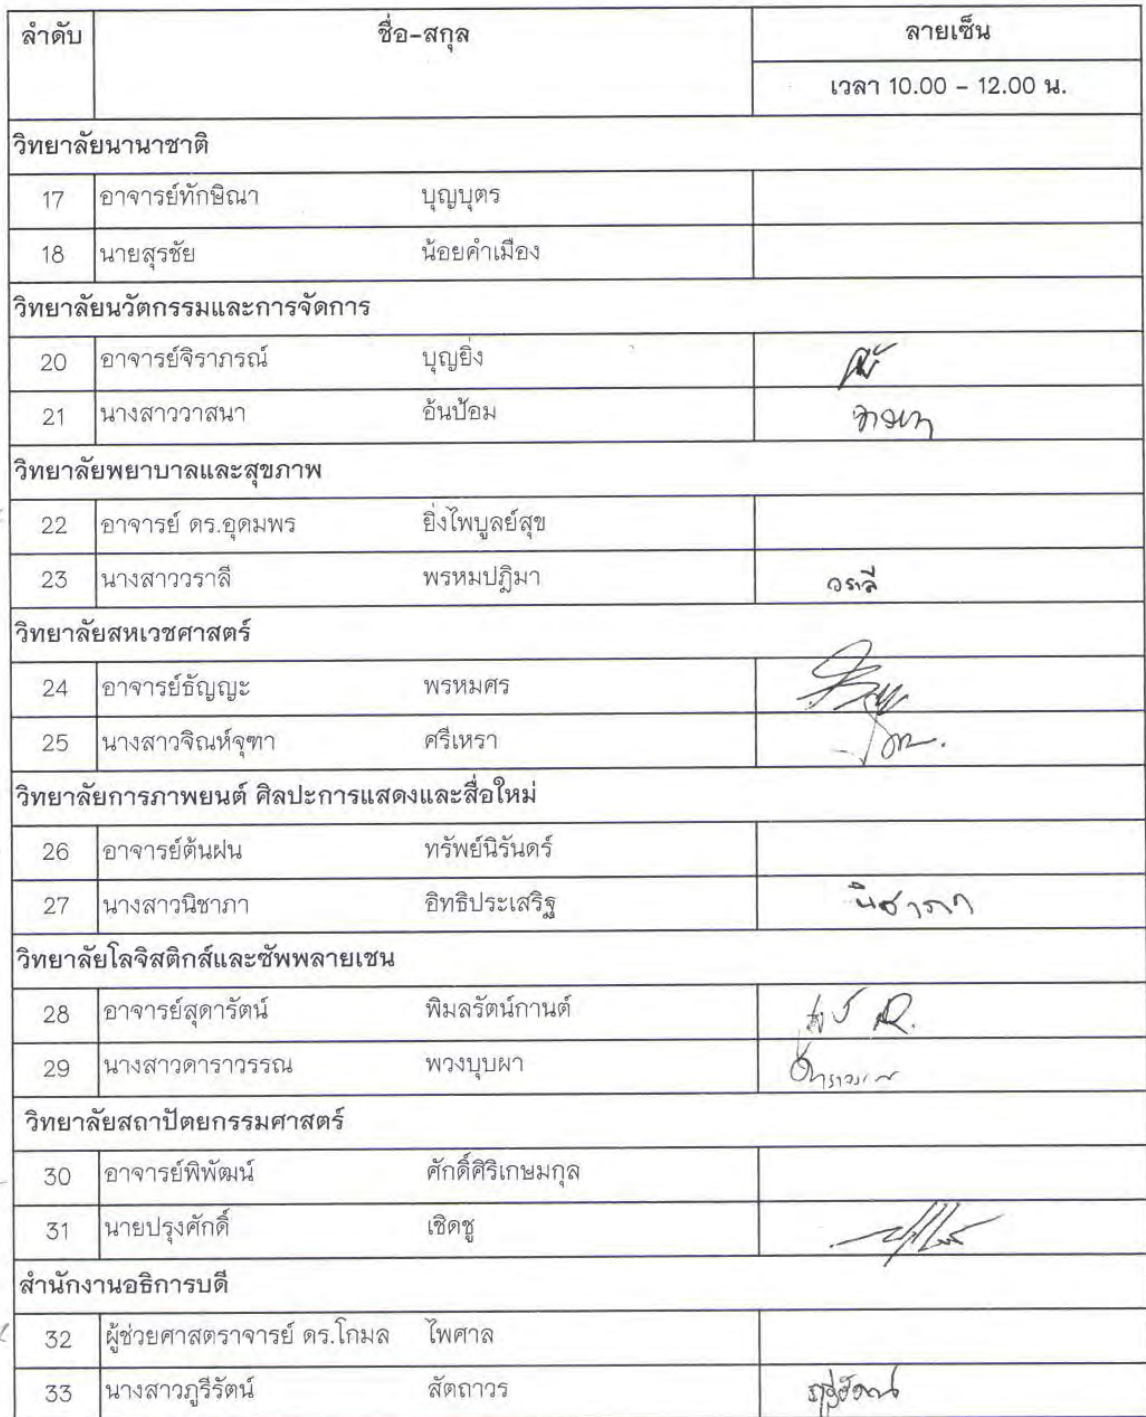 ลำดับ ชื่อ-สกุล ลายเซ็น
เวลา 10.00 - 12.00 น.
วิทยาลัยนานาชาติ
17 อาจารย์ทักษิณา บุญบุตร
18 นายสุรชัย น้อยคำเมือง
วิทยาลัยนวัตกรรมและการจัดการ
20 อาจารย์จิราภรณ์ บุญยิ่ง
21 นางสาววาสนา อ้นป้อม วาสนา
วิทยาลัยพยาบาลและสุขภาพ
22 อาจารย์ ดร.อุดมพร ยิ่งไพบูลย์สุข
23 นางสาววราลี พรหมปฎิมา วราลี
วิทยาลัยสหเวชศาสตร์
24 อาจารย์ธัญญะ พรหมศร
25 นางสาวจิณห์จุฑา ศรีเหรา
วิทยาลัยการภาพยนต์ ศิลปะการแสดงและสื่อใหม่
26 อาจารย์ต้นฝน ทรัพย์นิรันดร์
27 นางสาวนิชาภา อิทธิประเสริฐ นิชาภา
วิทยาลัยโลจิสติกส์และซัพพลายเชน
28 อาจารย์สุดารัตน์ พิมลรัตน์กานต์
29 นางสาวดาราวรรณ พวงบุบผา
วิทยาลัยสถาปัตยกรรมศาสตร์
30 อาจารย์พิพัฒน์ ศักดิ์ศิริเกษมกุล
31 นายปรุงศักดิ์ เชิดชู
สำนักงานอธิการบดี
32 ผู้ช่วยศาสตราจารย์ ดร.โกมล ไพศาล
33 นางสาวภูรีรัตน์ สัตถาวร